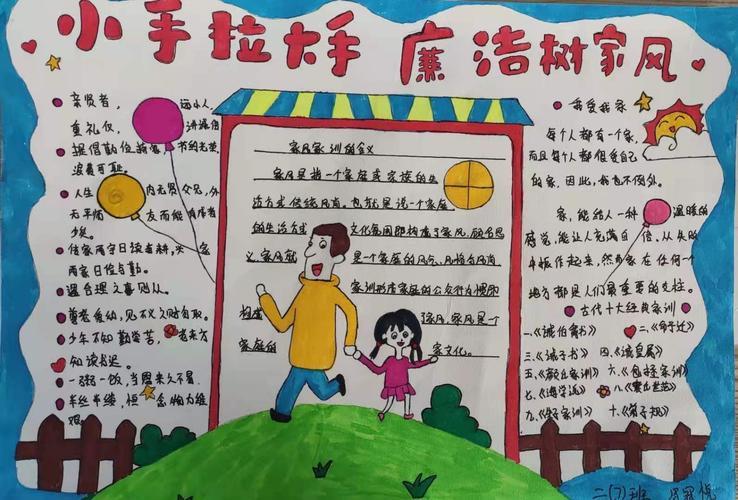 小手拉大手 廉洁树家风
亲贤者，远小人，
重礼仪，讲诚信
提倡勤俭 节约光荣，
浪费可耻。
人生 内无贤父兄，外
无 友而能有 者
少矣。
传家两字曰读 耕，兴家
两家曰俭 勤。
尊老爱幼，见不义 取。
少年不知勤学苦，老来方
知读书迟。
一粥一饭，当思来 不易，
半丝半缕，恒念物力维
艰。
家风家训的含义
家风是指一个家庭或家族的生
活方式 传统风尚。也就是说一个家庭
的生活方式 文化氛围即构成了家风，顾名思
义家风就是一个家庭的风气、风格与风尚
家训形成家庭的公众行为惯即
构成 家风，家风是一个
家庭的 家文化。
我爱我家
每个人都有一个家，
而且每个人都很爱自己
的家，因此，我也不例外。
家，能给人一种温暖的
感觉，能让人充满自信，从失败
中振作起来，然而家在任何一个
地方都是人们最重要的支柱。
古代十大经典家训
一、《诫伯禽书》 二、《命子迁》
三、《诫子书》 四、《诫皇属》
五、《颜氏家训》 六、《包拯家训》
七、《诲学说》 八、
九、 家训》 十、《弟子规》
二(7)班